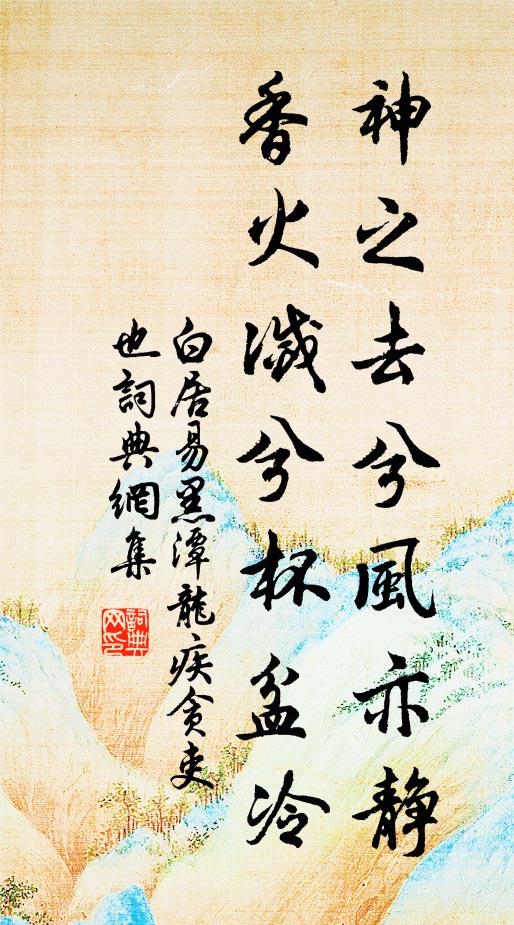 神之去兮風亦静
香火滅兮杯盆冷
白居易黑潭龍疾貪吏
也詞典網集
詞典